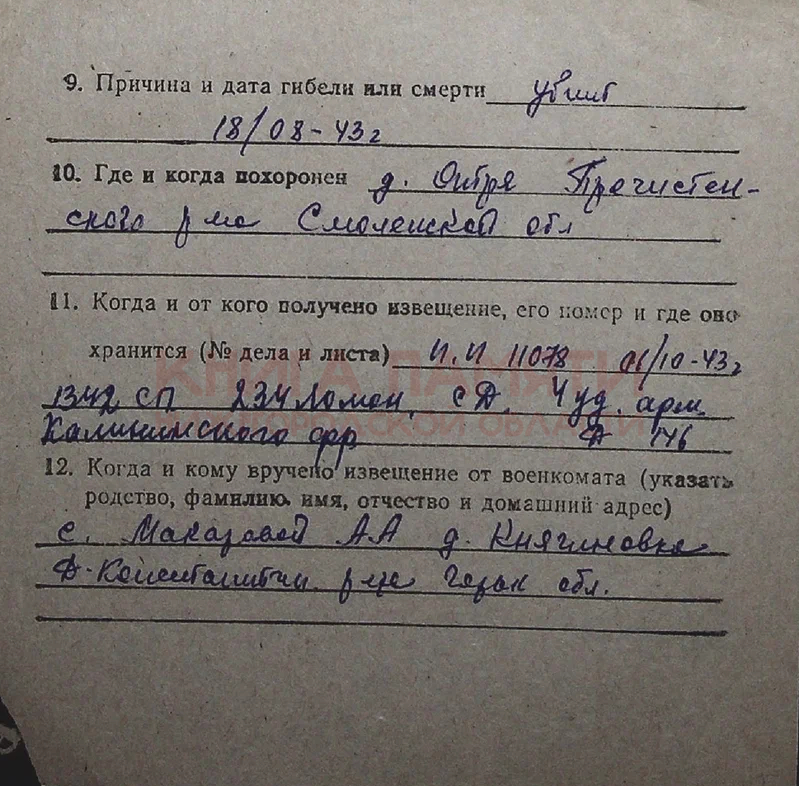 9. Причина и дата гибели или смерти убит
18/08-43 г
10. Где и когда похоронен д. Отря Пречистен-
ского р-на Смоленской обл
11. Когда и от кого получено извещение, его номер и где оно
хранится (№ дела и листа) И.И 11078 01/10-43 г
КНИГА ПАМЯТИ
1342 сп 234 Ломон. сД. 4 уд. арм.
НИЖЕГОРОДСКОЙ ОБЛАСТИ
Калининского фр Д 146
12. Когда и кому вручено извещение от военкомата (указать
родство, фамилию, имя, отчество и домашний адрес)
с. Макаровой А.А д. Княгиновка
Д-Константин р-на Горьк обл.